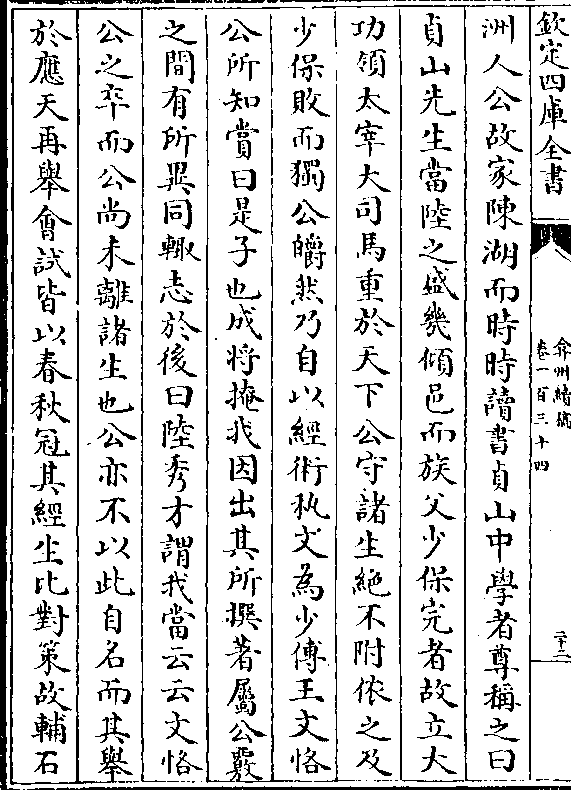 欽定四庫全書
弇州續稿
卷一百三十四
二十二
洲人公故家陳湖而時時讀書貞山中學者尊稱之曰
貞山先生當陸之盛幾傾邑而族父少保完者故立大
功領太宰大司馬重於天下公守諸生絶不附依之及
少保敗而獨公皭然乃自以經術執文為少傅王文恪
公所知賞曰是子也成将掩我因出其所撰著屬公覈
之間有所異同輙志於後曰陸秀才謂我當云云文恪
公之卒而公尚未離諸生也公亦不以此自名而其舉
於應天再舉會試皆以春秋冠其經生比對策故輔石